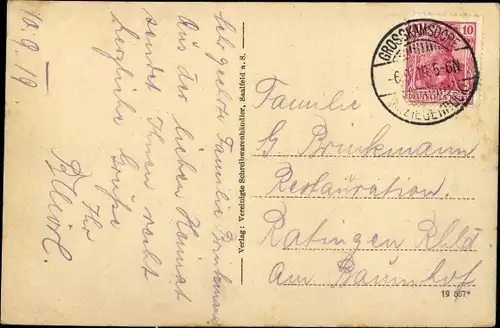 10.9.19.
Sehr geehrte Familie Brinkmann
Aus der lieben Heimat
sendet Ihnen recht
herzliche Grüße
Ihr
Verlag: Vereinigte Schreibwarenhändler, Saalfeld a. S.
GROSSKAMSDORF
5-6N
ZIEGENRÜCK
10
Familie
G Brinkmann
Restauration.
Ratingen Rhld
Am Baumhof
19 567*